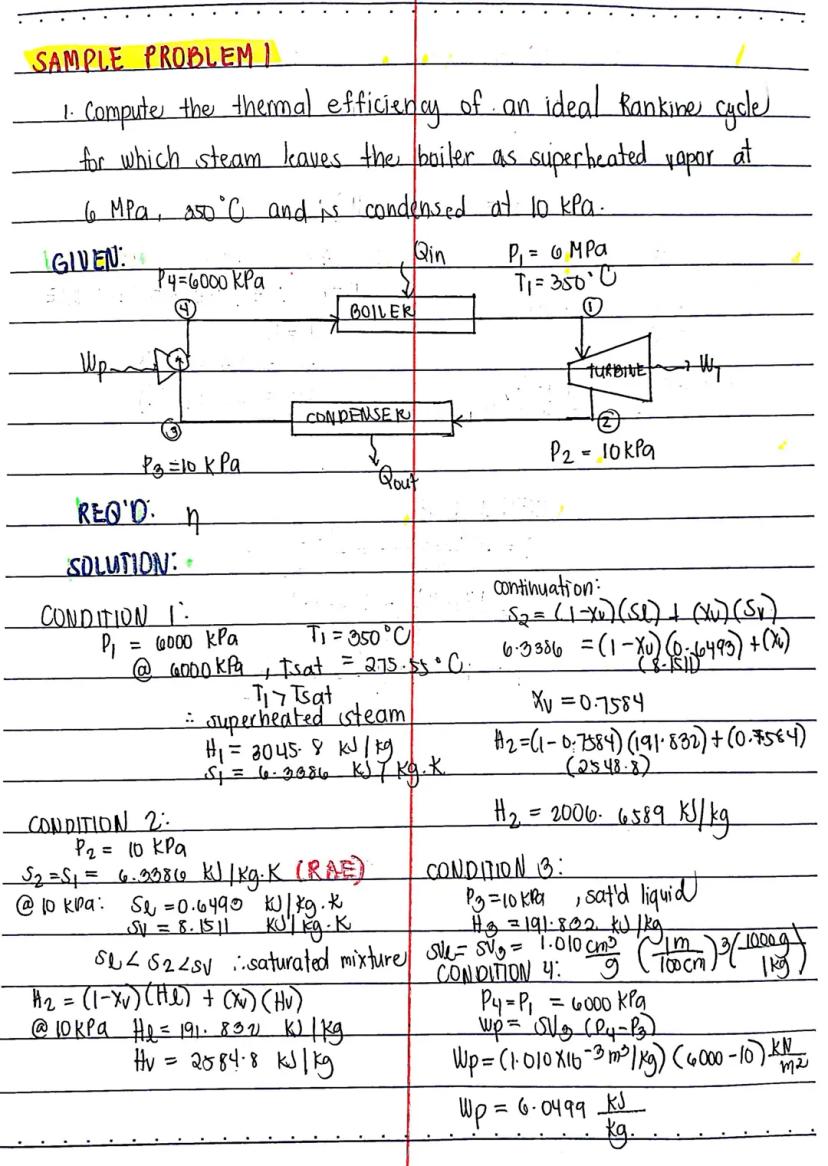 SAMPLE PROBLEM 1
1. Compute the thermal efficiency of an ideal Rankine cycle
for which steam leaves the boiler as superheated vapor at
6 MPa, 350°C and is condensed at 10 kPa.
GIVEN:
P4=6000 kPa
Qin
P1 = 6 MPa
T1 = 350°C
4
BOILER
1
Wp
TURBINE
WT
3
CONDENSER
2
P3=10 kPa
Qout
P2 = 10kPa
REQ'D: η
SOLUTION:
CONDITION 1:
P1 = 6000 kPa T1 = 350°C
@ 6000 kPa, Tsat = 275.55°C
T1 > Tsat
∴ superheated steam
H1 = 3045.8 kJ/kg
S1 = 6.3386 kJ/kg.K
CONDITION 2:
P2 = 10 kPa
S2=S1 = 6.3386 kJ/kg.K (RAE)
@ 10 kPa: Sl=0.6493 kJ/kg.K
Sv = 8.1511 kJ/kg.K
Sl < S2 < Sv ∴ saturated mixture
H2 = (1-Xv)(Hl) + (Xv)(Hv)
@ 10kPa Hl=191.832 kJ/kg
Hv = 2584.8 kJ/kg
continuation:
S2 = (1-Xv)(Sl) + (Xv)(Sv)
6.3386 = (1-Xv)(0.6493)+(Xv)
(8.1511)
Xv = 0.7584
H2=(1-0.7584)(191.832)+(0.7584)
(2548.8)
H2 = 2006.6589 kJ/kg
CONDITION 3:
P3=10 kPa, sat'd liquid
H3 = 191.832 kJ/kg
SVl= SV3 = 1.010 cm³/g (1m/100cm)³(1000g/1kg)
CONDITION 4:
P4=P1 = 6000 kPa
Wp= SV3 (P4-P3)
Wp=(1.010x10⁻³ m³/kg)(6000-10) kN/m2
Wp = 6.0499 kJ/kg.